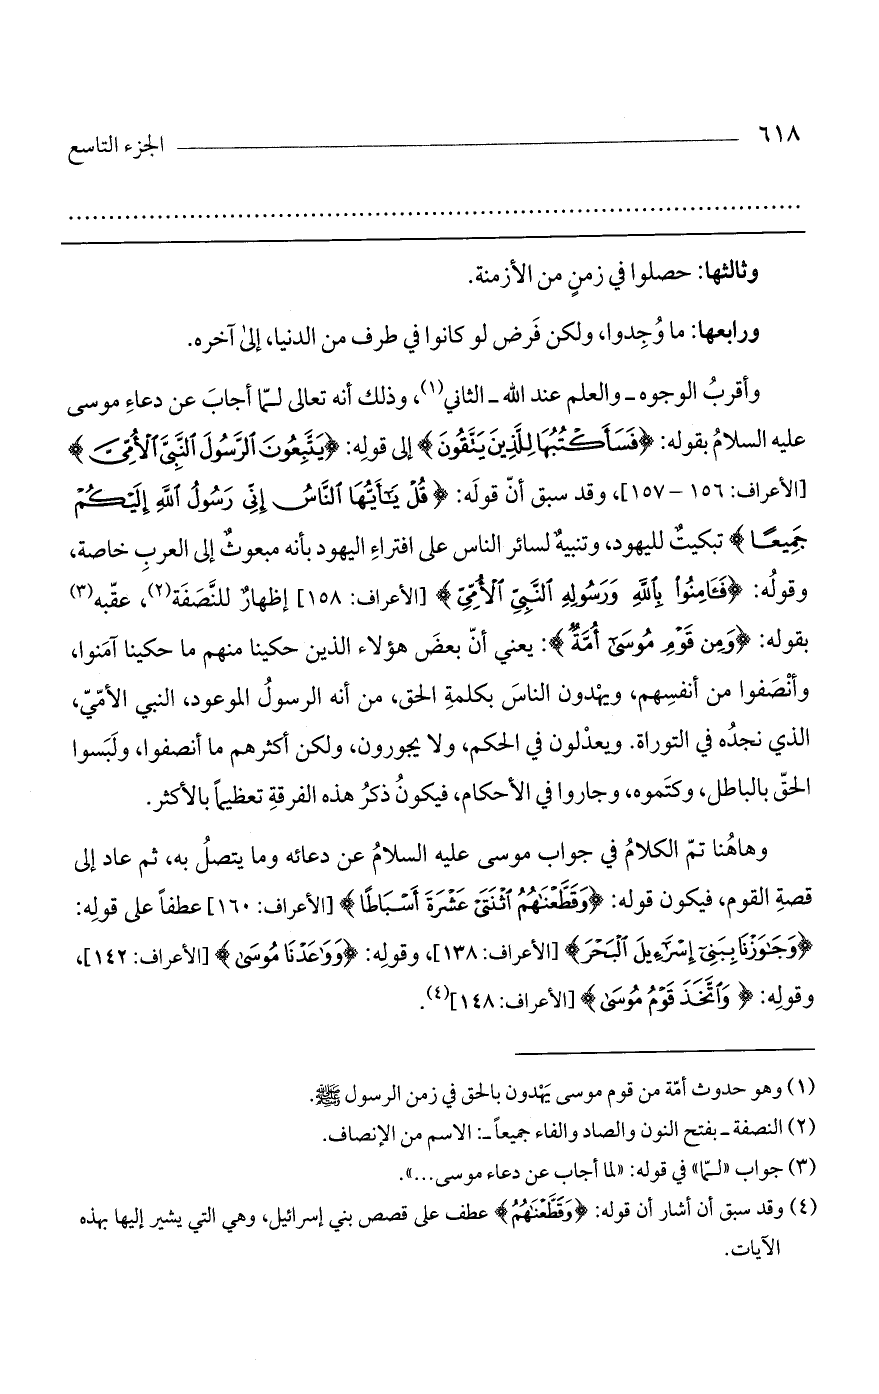 ٦١٨ الجزء التاسع
................................................................................
وثالثها: حصلوا في زمنٍ من الأزمنة.
ورابعها: ما وُجِدوا، ولكن فَرض لو كانوا في طرف من الدنيا، إلىٰ آخره.
وأقربُ الوجوه ـ والعلم عند الله ـ الثاني(١)، وذلك أنه تعالى لـمّا أجابَ عن دعاءِ موسى
عليه السلامُ بقوله: ﴿فَسَأَكْتُبُهَا لِلَّذِينَ يَتَّقُونَ﴾ إلى قولِه: ﴿يَتَّبِعُونَ ٱلرَّسُولَ ٱلنَّبِىَّ ٱلْأُمِّىَّ﴾
[الأعراف: ١٥٦ – ١٥٧]، وقد سبق أنّ قولَه: ﴿قُلْ يَٰٓأَيُّهَا ٱلنَّاسُ إِنِّى رَسُولُ ٱللَّهِ إِلَيْكُمْ
جَمِيعًا﴾ تبكيتٌ لليهود، وتنبيهٌ لسائر الناس على افتراءِ اليهود بأنه مبعوثٌ إلى العربِ خاصة،
وقولُه: ﴿فَـَٔامِنُوا۟ بِٱللَّهِ وَرَسُولِهِ ٱلنَّبِىِّ ٱلْأُمِّىِّ﴾ [الأعراف: ١٥٨] إظهارٌ للنَّصَفَة(٢)، عقّبه(٣)
بقوله: ﴿وَمِن قَوْمِ مُوسَىٰٓ أُمَّةٌ﴾: يعني أنّ بعضَ هؤلاء الذين حكينا منهم ما حكينا آمَنوا،
وأنْصَفوا من أنفسِهم، ويهْدون الناسَ بكلمةِ الحق، من أنه الرسولُ الموعود، النبي الأمّيّ،
الذي نجدُه في التوراة. ويعدْلون في الحكم، ولا يجورون، ولكن أكثرهم ما أنصفوا، ولَبَسوا
الحقّ بالباطل، وكتَموه، وجاروا في الأحكام، فيكونُ ذكرُ هذه الفرقةِ تعظيماً بالأكثر.
وهاهُنا تمّ الكلامُ في جواب موسى عليه السلامُ عن دعائه وما يتصلُ به، ثم عاد إلى
قصةِ القوم، فيكون قوله: ﴿وَقَطَّعْنَٰهُمُ ٱثْنَتَىْ عَشْرَةَ أَسْبَاطًا﴾ [الأعراف: ١٦٠] عطفاً على قولِه:
﴿وَجَٰوَزْنَا بِبَنِىٓ إِسْرَٰٓءِيلَ ٱلْبَحْرَ﴾ [الأعراف: ١٣٨]، وقولِه: ﴿وَوَاعَدْنَا مُوسَىٰ﴾ [الأعراف: ١٤٢]،
وقولِه: ﴿وَٱتَّخَذَ قَوْمُ مُوسَىٰ﴾ [الأعراف: ١٤٨](٤).
(١) وهو حدوث أمّة من قوم موسى يَهْدون بالحق في زمن الرسول ﷺ.
(٢) النصفة ـ بفتح النون والصاد والفاء جميعاً ـ: الاسم من الإنصاف.
(٣) جواب «لـمّا» في قوله: «لما أجاب عن دعاء موسى...».
(٤) وقد سبق أن أشار أن قوله: ﴿وَقَطَّعْنَٰهُمُ﴾ عطف على قصص بني إسرائيل، وهي التي يشير إليها بهذه
الآيات.